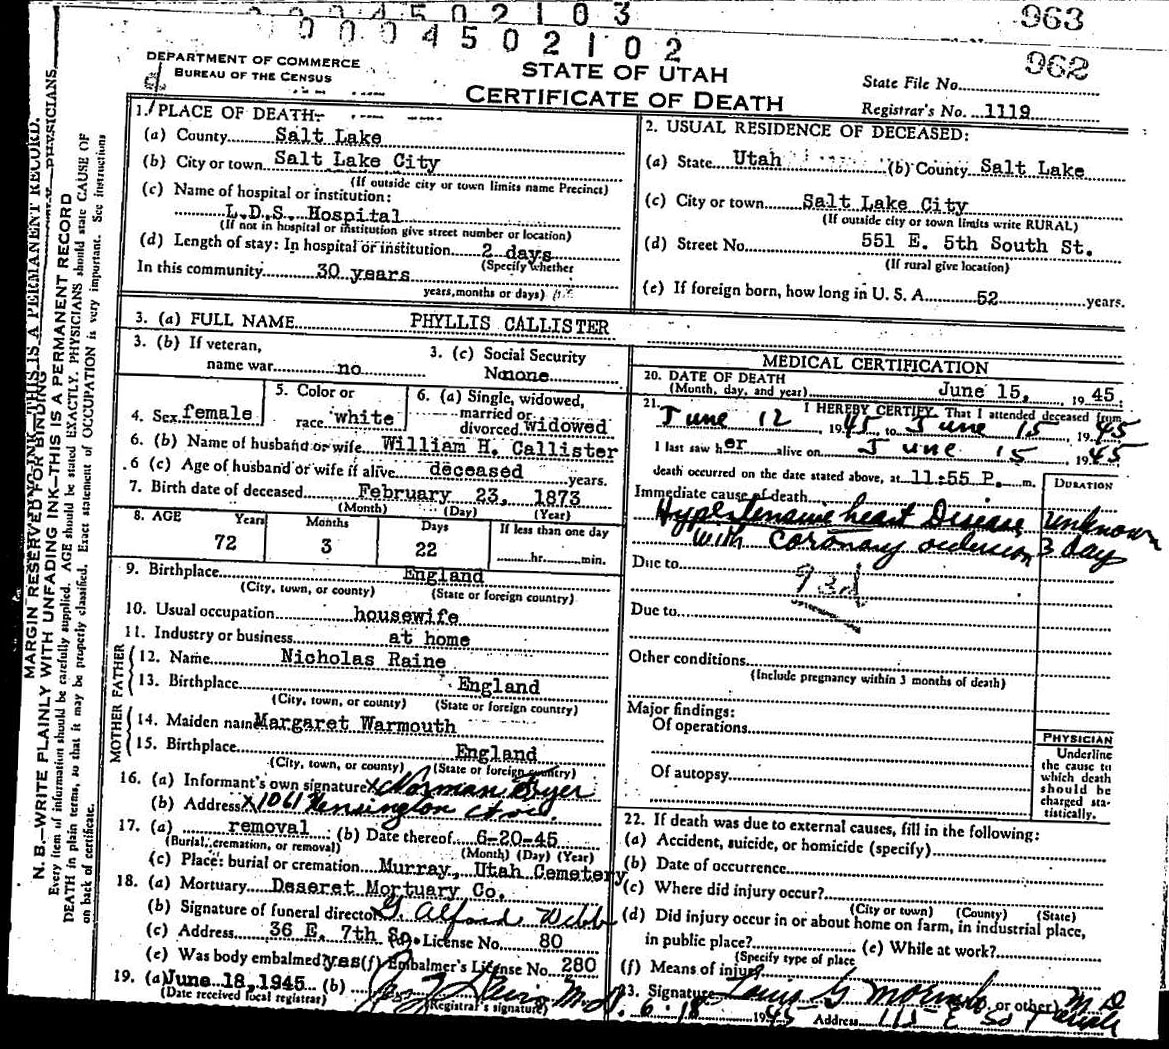 0004502103
963
0004502102
962
DEPARTMENT OF COMMERCE
BUREAU OF THE CENSUS
STATE OF UTAH
CERTIFICATE OF DEATH
State File No.
Registrar's No. 1119
MARGIN RESERVED FOR BINDING
N. B.—WRITE PLAINLY WITH UNFADING INK—THIS IS A PERMANENT RECORD
Every item of information should be carefully supplied. AGE should be stated EXACTLY. PHYSICIANS should state CAUSE OF
DEATH in plain terms, so that it may be properly classified. Exact statement of OCCUPATION is very important. See instructions
on back of certificate.
1. PLACE OF DEATH:
(a) County Salt Lake
(b) City or town Salt Lake City
(If outside city or town limits name Precinct)
(c) Name of hospital or institution:
L.D.S. Hospital
(If not in hospital or institution give street number or location)
(d) Length of stay: In hospital or institution 2 days
(Specify whether
In this community 30 years
years, months or days)
2. USUAL RESIDENCE OF DECEASED:
(a) State Utah (b) County Salt Lake
(c) City or town Salt Lake City
(If outside city or town limits write RURAL)
(d) Street No. 551 E. 5th South St.
(If rural give location)
(e) If foreign born, how long in U. S. A. 52 years.
3. (a) FULL NAME PHYLLIS CALLISTER
3. (b) If veteran,
name war no
3. (c) Social Security
No none
4. Sex female
5. Color or
race white
6. (a) Single, widowed,
married or
divorced widowed
6. (b) Name of husband or wife William H. Callister
6 (c) Age of husband or wife if alive deceased years.
7. Birth date of deceased February 23, 1873
(Month) (Day) (Year)
8. AGE Years Months Days If less than one day
72 3 22 hr. min.
9. Birthplace England
(City, town, or county) (State or foreign country)
10. Usual occupation housewife
11. Industry or business at home
FATHER
12. Name Nicholas Raine
13. Birthplace England
(City, town, or county) (State or foreign country)
MOTHER
14. Maiden name Margaret Warmouth
15. Birthplace England
(City, town, or county) (State or foreign country)
16. (a) Informant's own signature x Norman Fyer
(b) Address x 1061 Kensington Ave.
17. (a) removal (b) Date thereof 6-20-45
(Burial, cremation, or removal) (Month) (Day) (Year)
(c) Place: burial or cremation Murray, Utah Cemetery
18. (a) Mortuary Deseret Mortuary Co.
(b) Signature of funeral director G. Alford Webb
(c) Address 36 E. 7th So. License No. 80
(e) Was body embalmed? yes (f) Embalmer's License No. 280
19. (a) June 18, 1945 (b) M.D.
(Date received local registrar) (Registrar's signature)
MEDICAL CERTIFICATION
20. DATE OF DEATH
(Month, day, and year) June 15, 1945.
21. I HEREBY CERTIFY, That I attended deceased from
June 12 1945, to June 15, 1945
I last saw her alive on June 15 1945
death occurred on the date stated above, at 11:55 P. m.
DURATION
Immediate cause of death
Hypertensive heart Disease unknown
with coronary occlusion 3 day
Due to 93d
Due to
Other conditions
(Include pregnancy within 3 months of death)
Major findings:
Of operations
Of autopsy
PHYSICIAN
Underline
the cause to
which death
should be
charged sta-
tistically.
22. If death was due to external causes, fill in the following:
(a) Accident, suicide, or homicide (specify)
(b) Date of occurrence
(c) Where did injury occur?
(City or town) (County) (State)
(d) Did injury occur in or about home on farm, in industrial place,
in public place? (e) While at work?
(Specify type of place
(f) Means of injury
23. Signature Louis G Moench or other) M D
6 18 1945 Address 115 E So Temple